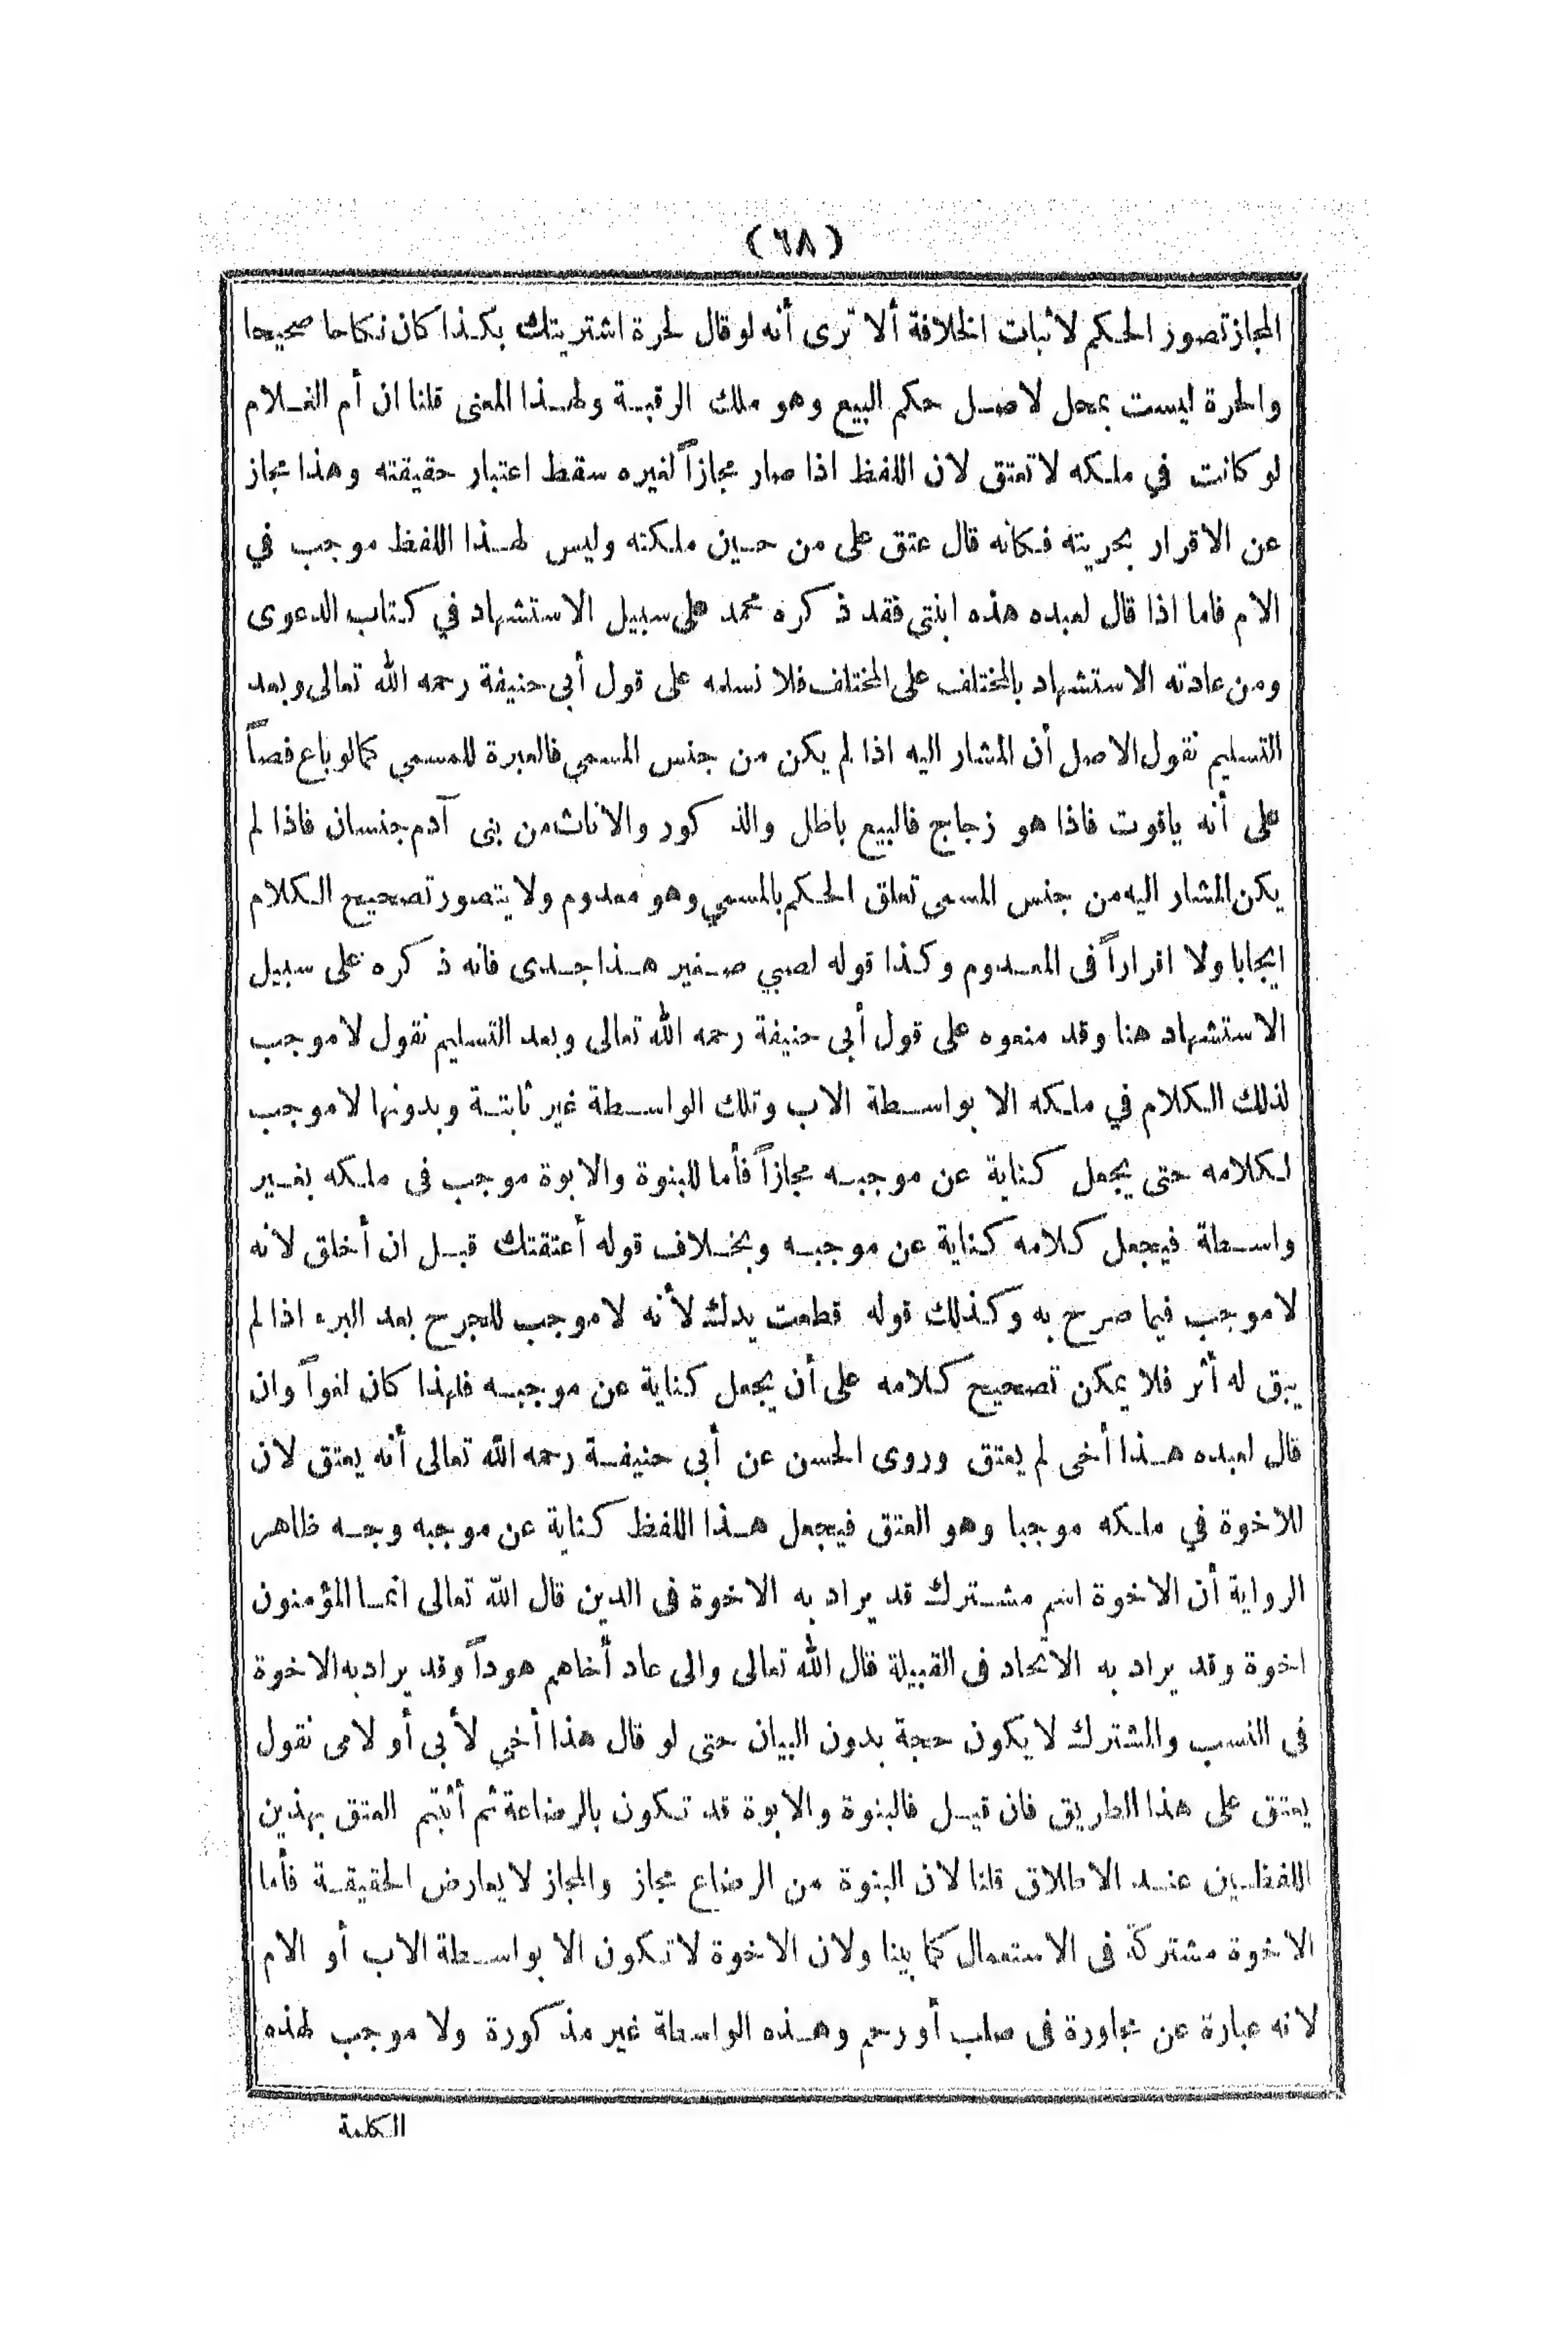 (٦٨)
المجاز تصور الحكم لاثبات الخلافة ألا ترى أنه لو قال لحرة اشتريتك بكذا كان نكاحا صحيحا
والحرة ليست بمحل لاصل حكم البيع وهو ملك الرقبة ولهذا المعنى قلنا ان أم الغلام
لو كانت في ملكه لا تعتق لان اللفظ اذا صار مجازاً لغيره سقط اعتبار حقيقته وهذا مجاز
عن الاقرار بحريته فكانه قال عتق على من حين ملكته وليس لهذا اللفظ موجب في
الام فاما اذا قال لعبده هذه ابنتى فقد ذكره محمد على سبيل الاستشهاد في كتاب الدعوى
ومن عادته الاستشهاد بالمختلف على المختلف فلا نسلمه على قول أبى حنيفة رحمه الله تعالى وبعد
التسليم نقول الاصل أن المشار اليه اذا لم يكن من جنس المسمي فالعبرة للمسمي كما لو باع فصاً
على أنه ياقوت فاذا هو زجاج فالبيع باطل والذكور والاناث من بنى آدم جنسان فاذا لم
يكن المشار اليه من جنس المسمى تعلق الحكم بالمسمي وهو معدوم ولا يتصور تصحيح الكلام
ايجابا ولا اقراراً فى المعدوم وكذا قوله لصبي صغير هذا جدى فانه ذكره على سبيل
الاستشهاد هنا وقد منعوه على قول أبى حنيفة رحمه الله تعالى وبعد التسليم نقول لا موجب
لذلك الكلام في ملكه الا بواسطة الاب وتلك الواسطة غير ثابتة وبدونها لا موجب
لكلامه حتى يجعل كناية عن موجبه مجازاً فأما للبنوة والابوة موجب فى ملكه بغير
واسطة فيجعل كلامه كناية عن موجبه وبخلاف قوله أعتقتك قبل ان أخلق لانه
لا موجب فيما صرح به وكذلك قوله قطعت يدك لأنه لا موجب للجرح بعد البرء اذا لم
يبق له أثر فلا يمكن تصحيح كلامه على أن يجعل كناية عن موجبه فلهذا كان لغواً وان
قال لعبده هذا أخى لم يعتق وروى الحسن عن أبى حنيفة رحمه الله تعالى أنه يعتق لان
للاخوة في ملكه موجبا وهو العتق فيجعل هذا اللفظ كناية عن موجبه وجه ظاهر
الرواية أن الاخوة اسم مشترك قد يراد به الاخوة فى الدين قال الله تعالى انما المؤمنون
اخوة وقد يراد به الاتحاد فى القبيلة قال الله تعالى والى عاد أخاهم هوداً وقد يراد به الاخوة
فى النسب والمشترك لا يكون حجة بدون البيان حتى لو قال هذا أخي لأبى أو لامى نقول
يعتق على هذا الطريق فان قيل فالبنوة والابوة قد تكون بالرضاعة ثم أثبتم العتق بهذين
اللفظين عند الاطلاق قلنا لان البنوة من الرضاع مجاز والمجاز لا يعارض الحقيقة فأما
الاخوة مشتركة فى الاستعمال كما بينا ولان الاخوة لا تكون الا بواسطة الاب أو الام
لانه عبارة عن مجاورة فى صلب أو رحم وهذه الواسطة غير مذكورة ولا موجب لهذه
الكلمة